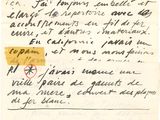 ici. J'ai toujours embelli et
élargi le répertoire avec des
accoutrements en fil de fer,
cuivre, et d'autres materiaux.
En californie j'avais un
copain et nous nous
j'avais même une
vieille paire de gants de
ma mère, couvert de plaques
de fer blanc.